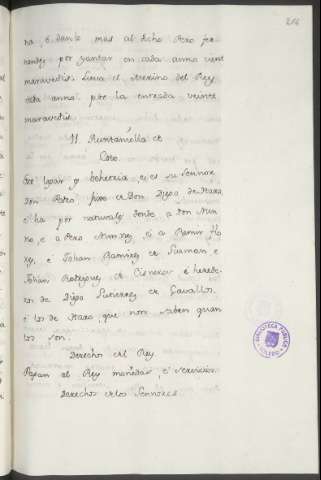 216
ra, e danle mas al dicho Pero fer-
nandez por yantar en cada anno veint
maravedis. Lieva el Merino del Rey
cada anno por la entrada veinte
maravedis.
Quintaniella de
Coto.
Este logar es behetria, e es su Sennor
Don Pedro fijo de Don Diego de Haro,
e ha por naturales donde a Don Nun-
no, e a Pero Nunnez, e a Ramir
e Johan Ramirez de Guzman e
Johan Rodriguez de Cisneros e herede-
ros de Diego Gutierrez de Cavallos,
e los de Haro, que non saben quan-
tos son.
Derechos del Rey
Pagan al Rey monedas, e servicios.
Derechos de los Sennores
BIBLIOTECA PUBLICA
TOLEDO